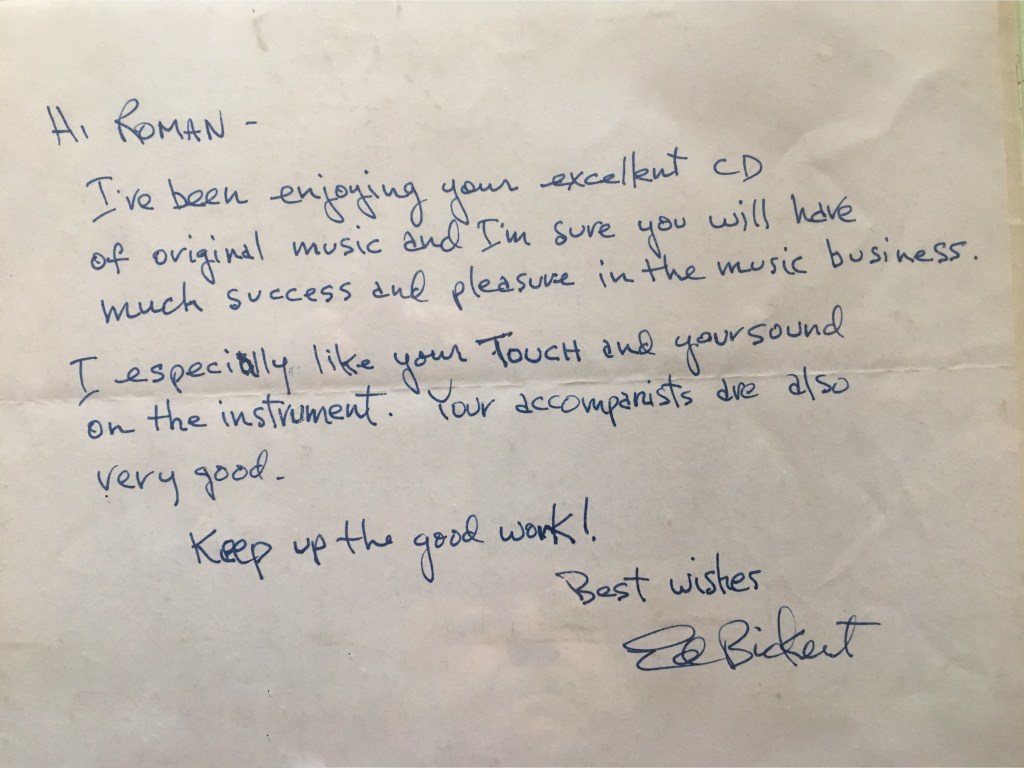 Hi ROMAN -
I've been enjoying your excellent CD
of original music and I'm sure you will have
much success and pleasure in the music business.
I especially like your TOUCH and your sound
on the instrument. Your accompanists are also
very good.
Keep up the good work!
Best wishes
Ed Bickert